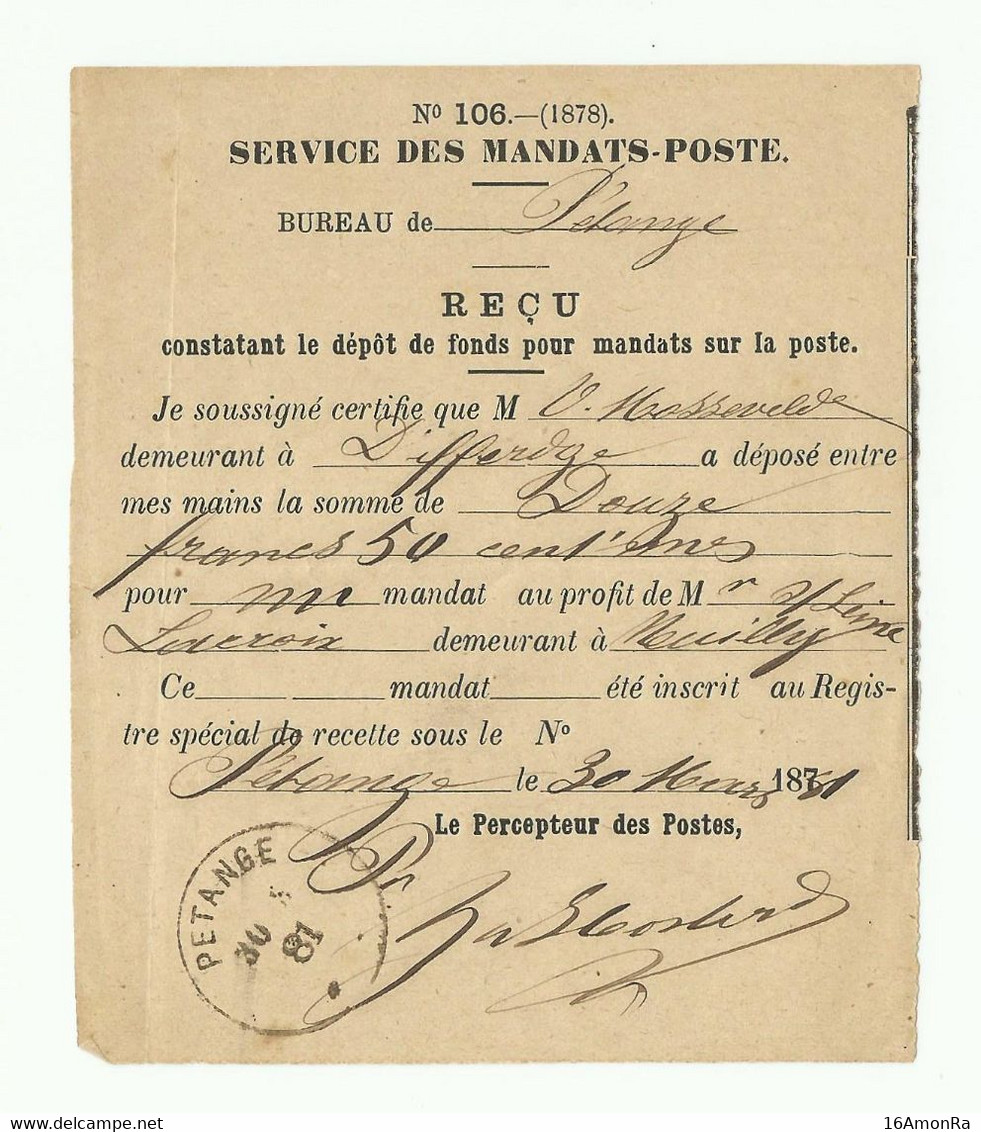 Nº 106.—(1878).
SERVICE DES MANDATS-POSTE.
BUREAU de Pétange
REÇU
constatant le dépôt de fonds pour mandats sur la poste.
Je soussigné certifie que M V.
demeurant à Differdge a déposé entre
mes mains la somme de Douze
francs 50 centimes
pour un mandat au profit de Mr
Lacroix demeurant à Neuilly
Ce mandat été inscrit au Regis-
tre spécial de recette sous le Nº
Pétange le 30 Mars 1881
Le Percepteur des Postes,
PETANGE
30
81
16AmonRa